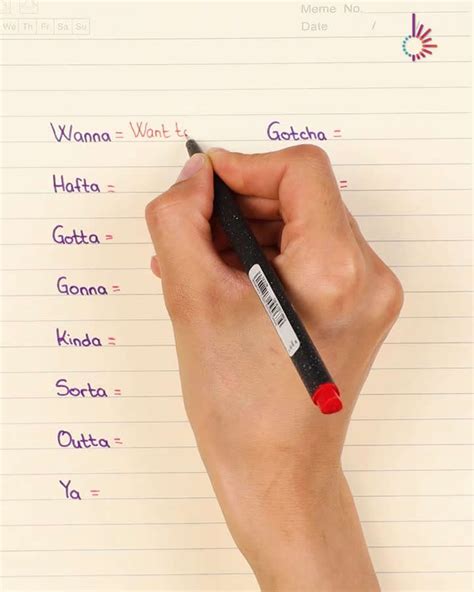 Meme No.
We Th Fr Sa Su
Date /
Wanna = Want to
Gotcha =
Hafta =
=
Gotta =
Gonna =
Kinda =
Sorta =
Outta =
Ya =